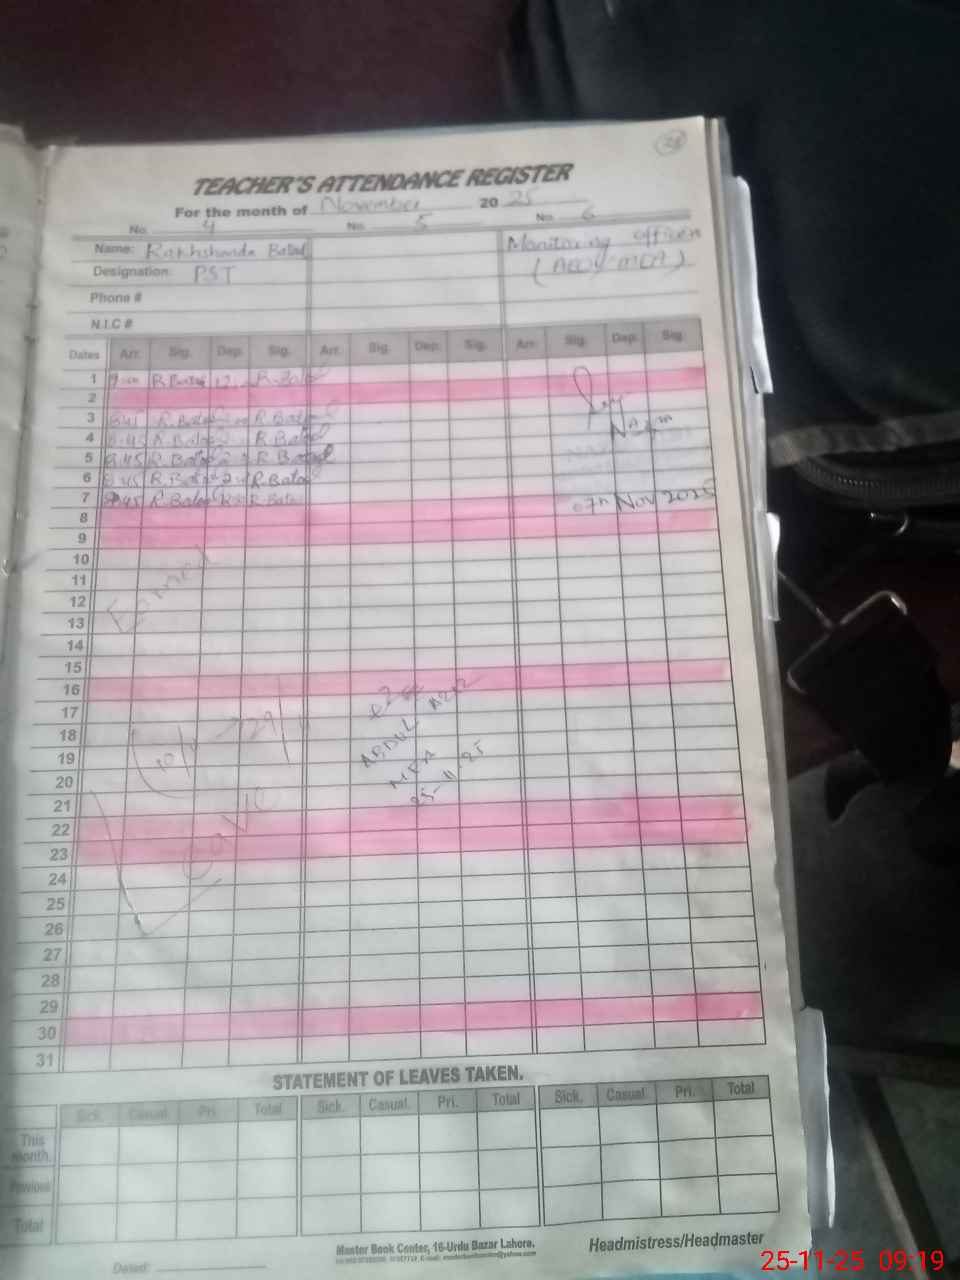 38
TEACHER'S ATTENDANCE REGISTER
For the month of November 2025
No. 4 No. 5 No. 6
Name: Rakhshanda Batool Monitoring officer
Designation: PST
Phone #
N.I.C #
Dates Arr. Sig. Dep. Sig. Arr. Sig. Dep. Sig. Arr. Sig. Dep. Sig.
1 R. Batool R. Batool
2
3 8:45 R. Batool R. Batool
4 8:45 R. Batool R. Batool
Nazim
5 8:45 R. Batool R. Batool
6 8:45 R. Batool R. Batool
7 8:45 R. Batool R. Batool 07th Nov 2025
8
9
10
11
12
13
14
15
16
17
18
19
20
21
22
23
24
25
26
27
28
29
30
31
10/11 → 29/11
Leave
ABDUL AZIZ
MEA
25-11-25
STATEMENT OF LEAVES TAKEN.
Sick. Casual. Pri. Total Sick. Casual. Pri. Total Sick. Casual. Pri. Total
This month.
Previous
Total
Master Book Center, 16-Urdu Bazar Lahore.
Headmistress/Headmaster
Dated:
25-11-25 09:19